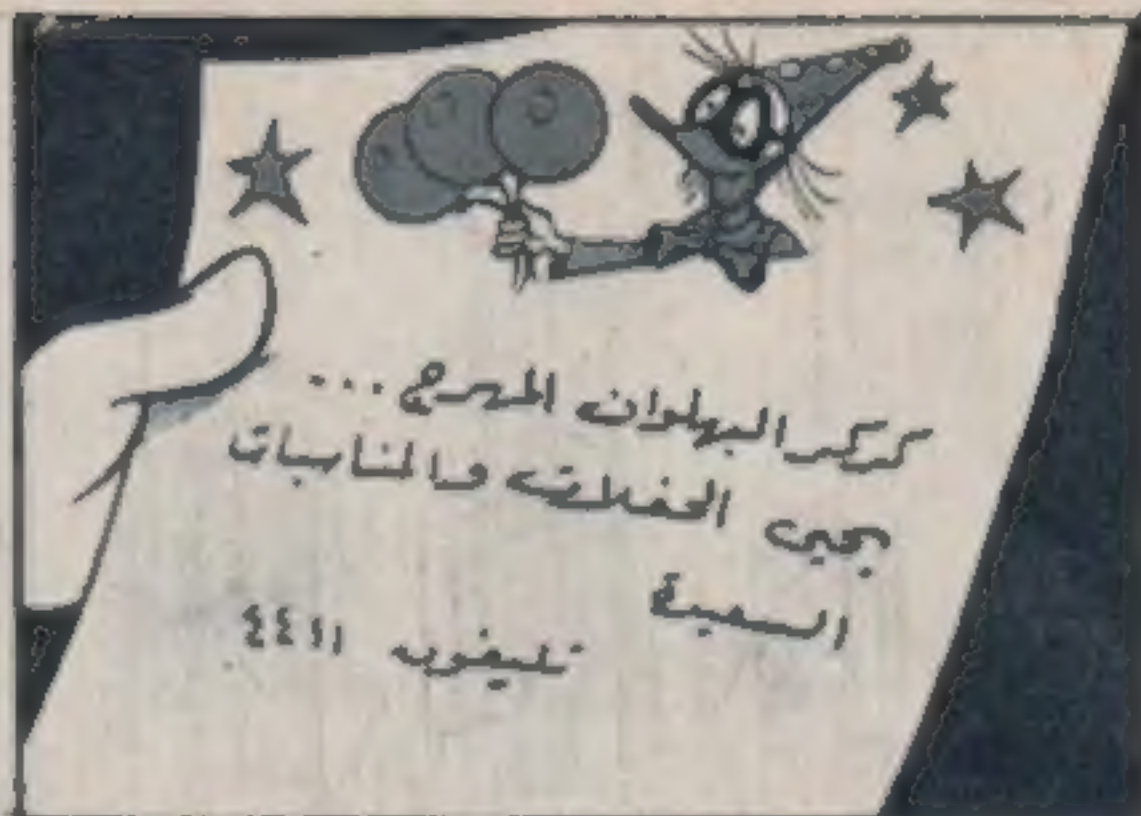 كركر البهلوان المهرج ...
يحيى الحفلات والمناسبات
السعيدة
تليفون ٤٤١١